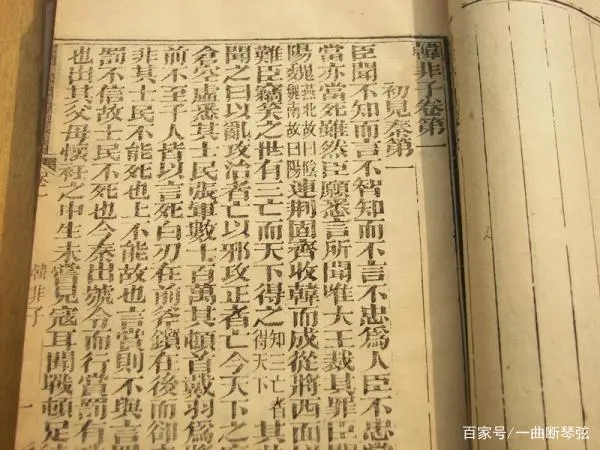 韓非子卷第一
初見秦第一
臣聞不知而言不智知而不言不忠爲人臣不忠
當亦當死雖然臣願悉言所聞唯大王裁其罪臣
陽魏燕北故曰陰魏南故曰陽連荆固齊收韓而成從將西面
難臣竊笑之世有三亡而天下得之知三亡者得天下其
聞之曰以亂攻治者亡以邪攻正者亡今天下之
倉空虛悉其士民張軍數十百萬其頓首戴羽爲
前不至千人皆以言死白刃在前斧鑕在後而卻
非其士民不能死也上不能故也言賞則不與言
罰不信故士民不死也今秦出號令而行賞罰有
也出其父母懷衽之中生未嘗見寇耳聞戰頓足
韓非子
百家号/一曲断琴弦